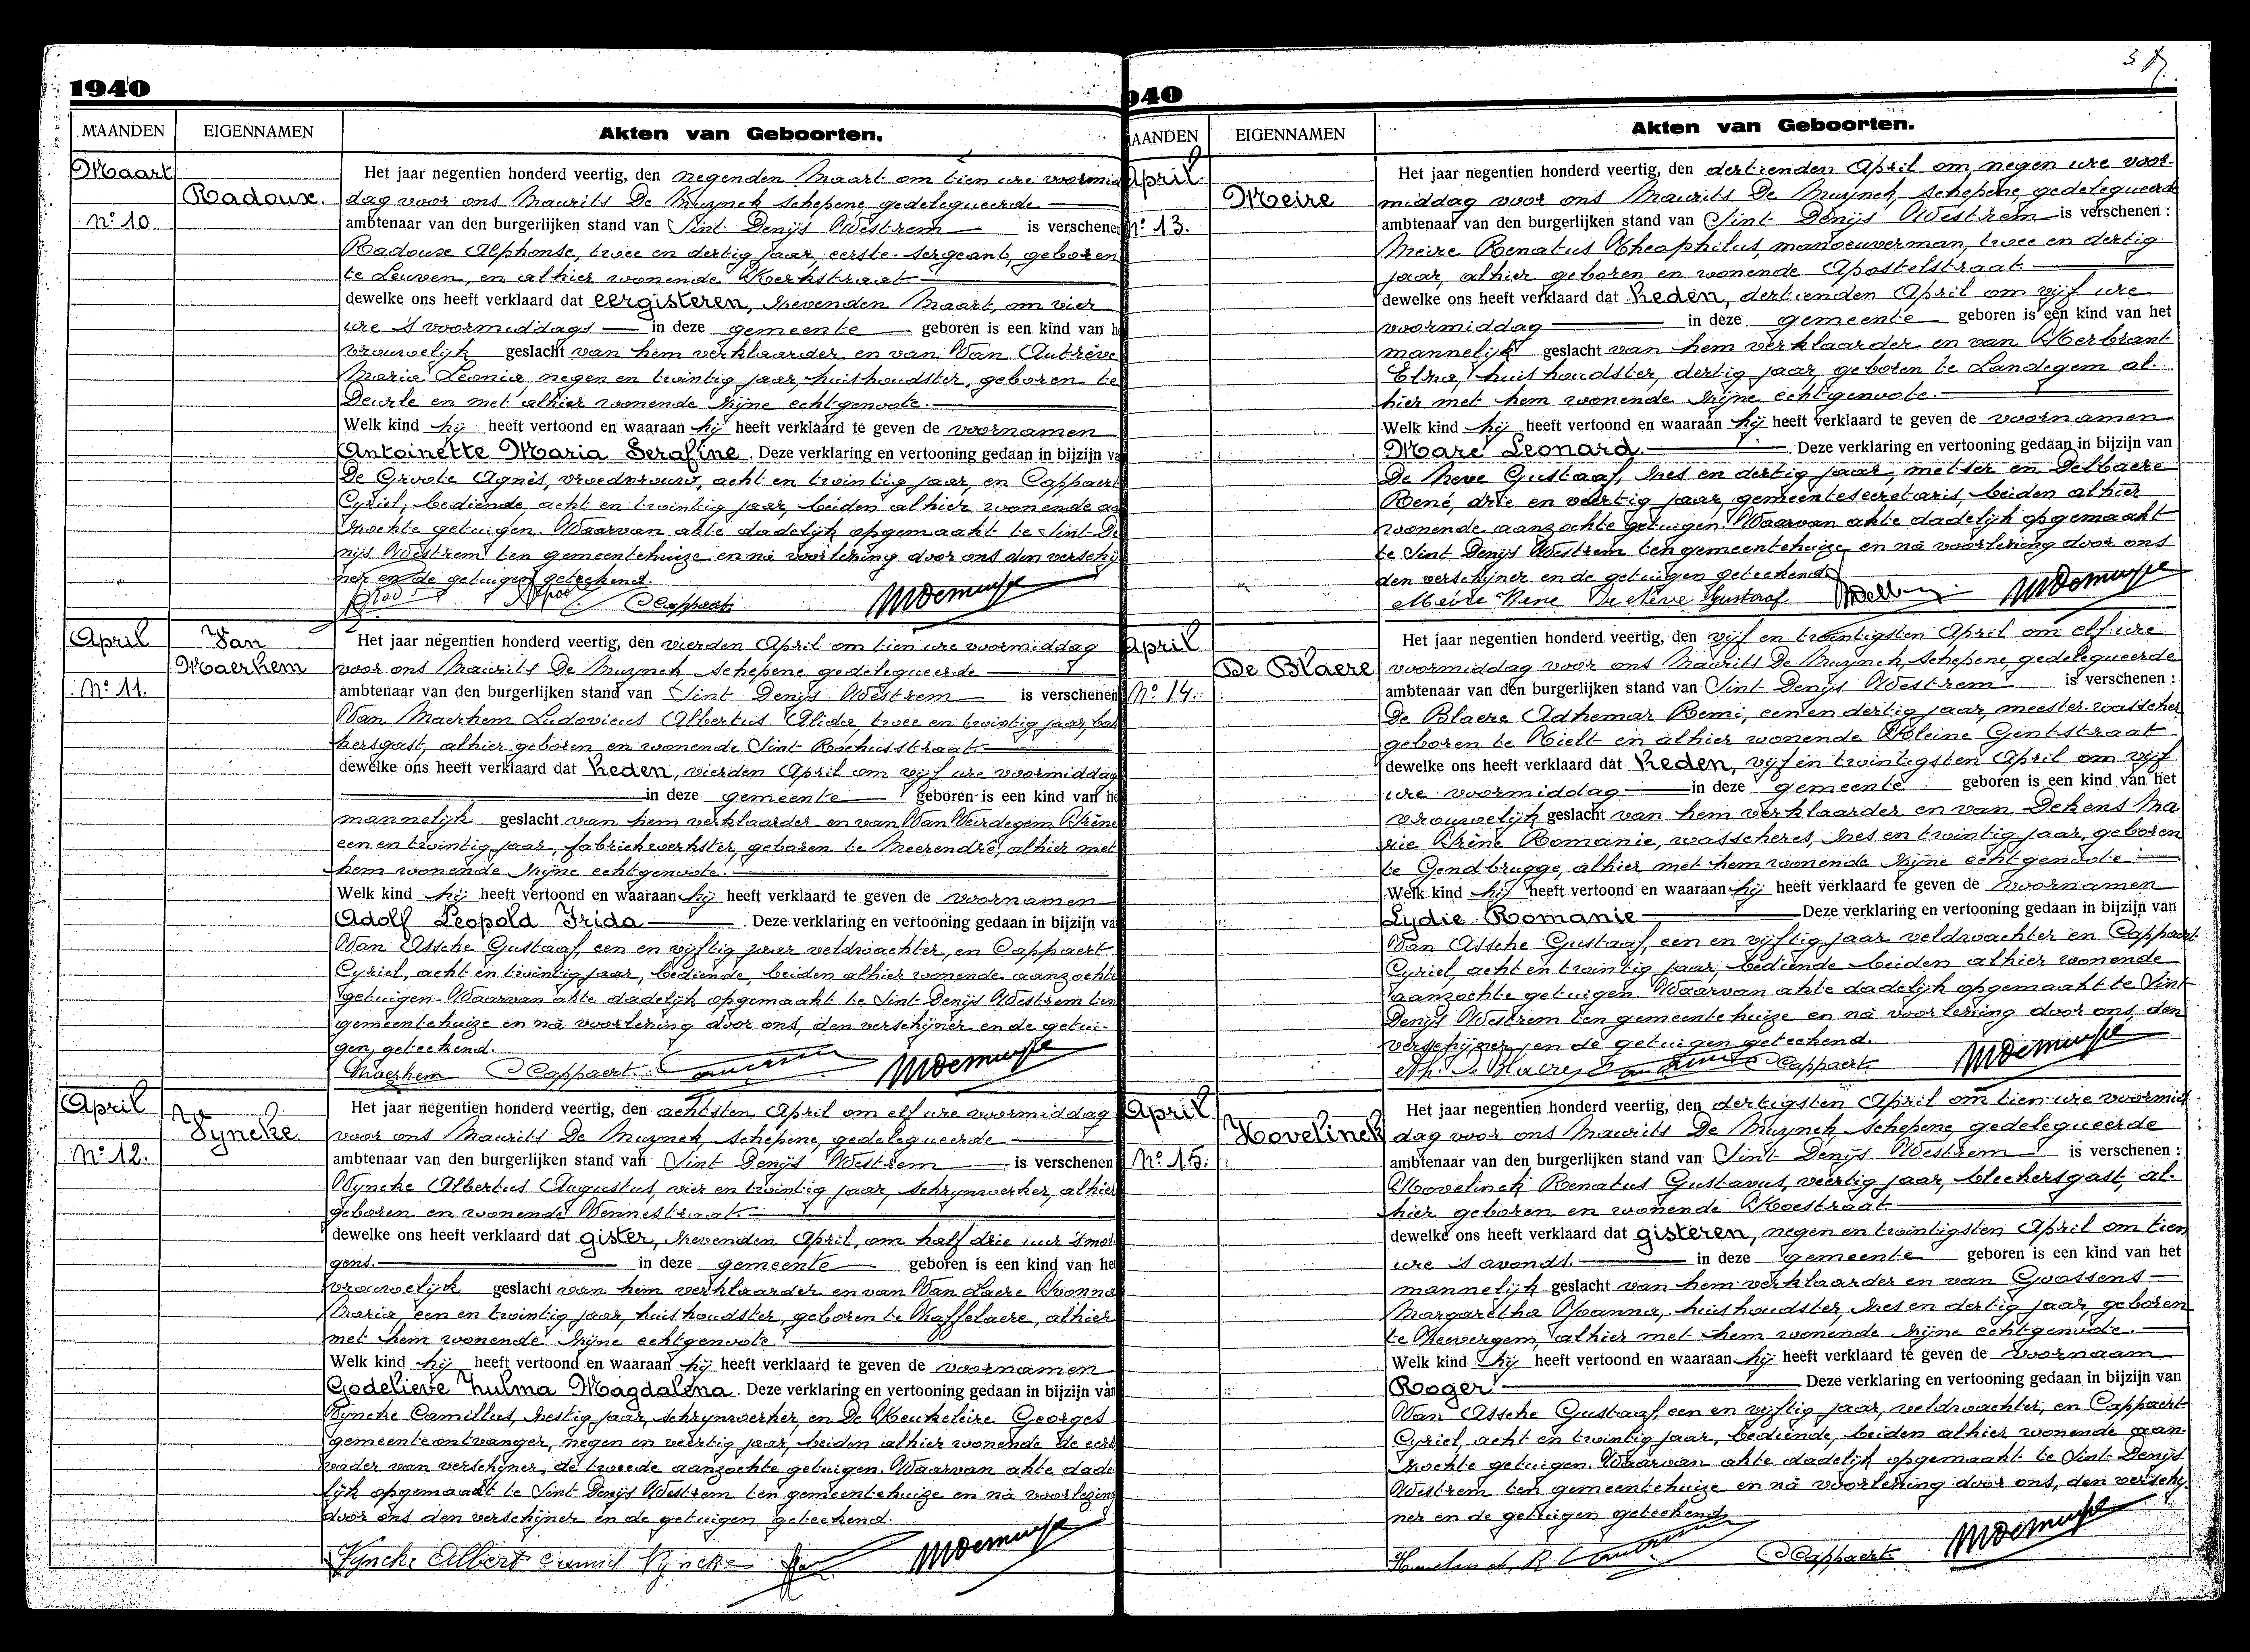 1940
MAANDEN EIGENNAMEN Akten van Geboorten.
Maart
Radoux.
Nº 10
Het jaar negentien honderd veertig, den negenden Maart om tien ure voormid
dag voor ons Maurits De Muynck Schepene gedelegueerde
ambtenaar van den burgerlijken stand van Sint Denijs Westrem is verschenen
Radoux Alphonse, twee en dertig jaar, eerste-sergeant, geboren
te Leuven, en alhier wonende Kerkstraat
dewelke ons heeft verklaard dat eergisteren, zevenden Maart, om vier
ure 's voormiddags in deze gemeente geboren is een kind van h
vrouwelijk geslacht van hem verklaarder en van Van Autrève
Maria Leonia, negen en twintig jaar, huishoudster, geboren te
Deurle en met alhier wonende zijne echtgenoote.
Welk kind hij heeft vertoond en waaraan hij heeft verklaard te geven de voornamen
Antoinette Maria Serafine. Deze verklaring en vertooning gedaan in bijzijn va
De Groote Agnès, vroedvrouw, acht en twintig jaar, en Cappaert
Cyriel, bediende, acht en twintig jaar, beiden alhier wonende aa
zochte getuigen. Waarvan akte dadelijk opgemaakt te Sint-De
nijs Westrem ten gemeentehuize en na voorlezing door ons den verschij
ner en de getuigen geteekend.
CCappaert MDemuyck
April
Van
Maerhem
Nº 11.
Het jaar negentien honderd veertig, den vierden April om tien ure voormiddag
voor ons Maurits De Muynck Schepene gedelegueerde
ambtenaar van den burgerlijken stand van Sint Denijs Westrem is verschenen
Van Maerhem Ludovicus Albertus Alida, twee en twintig jaar, bak
kersgast, alhier geboren en wonende Sint Rochusstraat
dewelke ons heeft verklaard dat heden, vierden April om vijf ure voormiddag
in deze gemeente geboren is een kind van he
mannelijk geslacht van hem verklaarder en van Van Weirdegem Irène
een en twintig jaar, fabriekwerkster, geboren te Meerendré, alhier met
hem wonende zijne echtgenoote.
Welk kind hij heeft vertoond en waaraan hij heeft verklaard te geven de voornamen
Adolf Leopold Frida. Deze verklaring en vertooning gedaan in bijzijn va
Van Assche Gustaaf, een en vijftig jaar veldwachter, en Cappaert
Cyriel, acht en twintig jaar, bediende, beiden alhier wonende aanzochte
getuigen. Waarvan akte dadelijk opgemaakt te Sint Denijs Westrem ten
gemeentehuize en na voorlezing door ons, den verschijner en de getui-
gen, geteekend.
Maerhem CCappaert MDemuyck
April
Vyncke
Nº 12.
Het jaar negentien honderd veertig, den achtsten April om elf ure voormiddag
voor ons Maurits De Muynck, Schepene, gedelegueerde
ambtenaar van den burgerlijken stand van Sint Denijs Westrem is verschenen
Vyncke Albertus Augustus, vier en twintig jaar, schrynwerker, alhier
geboren en wonende Vennestraat.
dewelke ons heeft verklaard dat gister, zevenden April, om half drie uur 's mor
gens. in deze gemeente geboren is een kind van he
vrouwelijk geslacht van hem verklaarder en van Van Laere Yvonna
Maria een en twintig jaar, huishoudster, geboren te Kaffelaere, alhier
met hem wonende zijne echtgenoote
Welk kind hij heeft vertoond en waaraan hij heeft verklaard te geven de voornamen
Godelieve Zulma Magdalena. Deze verklaring en vertooning gedaan in bijzijn van
Vyncke Camillus, zestig jaar, schrynwerker, en De Keukeleire Georges
gemeenteontvanger, negen en veertig jaar, beiden alhier wonende de eers
vader van verschijner, de tweede aanzochte getuigen. Waarvan akte dade
lijk opgemaakt te Sint Denijs Westrem ten gemeentehuize en na voorlezing
door ons den verschijner en de getuigen geteekend.
Vyncke Albert Camil Vyncke MDemuyck
940
AANDEN EIGENNAMEN Akten van Geboorten.
April
Meire
Nº 13.
Het jaar negentien honderd veertig, den dertienden April om negen ure voor-
middag voor ons Maurits De Muynck, Schepene, gedelegueerde
ambtenaar van den burgerlijken stand van Sint Denijs Westrem is verschenen :
Meire Renatus Theophilus, manoeuverman, twee en dertig
jaar, alhier geboren en wonende Apostelstraat
dewelke ons heeft verklaard dat heden, dertienden April om vijf ure
voormiddag in deze gemeente geboren is een kind van het
mannelijk geslacht van hem verklaarder en van Kerbrant
Elza, huishoudster, dertig jaar, geboren te Landegem al-
hier met hem wonende zijne echtgenoote.
Welk kind hij heeft vertoond en waaraan hij heeft verklaard te geven de voornamen
Marc Leonard. Deze verklaring en vertooning gedaan in bijzijn van
De Neve Gustaaf, zes en dertig jaar, metser en Delbaere
René, drie en veertig jaar, gemeentesecretaris, beiden alhier
wonende aanzochte getuigen. Waarvan akte dadelijk opgemaakt
te Sint Denijs Westrem ten gemeentehuize en na voorlezing door ons
den verschijner en de getuigen geteekend
Meire Rene De Neve Gustaaf MDemuyck
April
De Blaere
Nº 14.
Het jaar negentien honderd veertig, den vijf en twintigsten April om elf ure
voormiddag voor ons Maurits De Muynck, Schepene, gedelegueerde
ambtenaar van den burgerlijken stand van Sint Denijs Westrem is verschenen :
De Blaere Adhemar Remi, een en dertig jaar, meester-wasscher
geboren te Tielt en alhier wonende Kleine Gentstraat
dewelke ons heeft verklaard dat heden, vijf en twintigsten April om vijf
ure voormiddag in deze gemeente geboren is een kind van het
vrouwelijk geslacht van hem verklaarder en van Dekens Ma
rie Irène Romanie, wasscheres, zes en twintig jaar, geboren
te Gendbrugge, alhier met hem wonende zijne echtgenoote
Welk kind hij heeft vertoond en waaraan hij heeft verklaard te geven de voornamen
Lydie Romanie Deze verklaring en vertooning gedaan in bijzijn van
Van Assche Gustaaf, een en vijftig jaar veldwachter en Cappaert
Cyriel, acht en twintig jaar, bediende beiden alhier wonende
aanzochte getuigen. Waarvan akte dadelijk opgemaakt te Sint
Denijs Westrem ten gemeentehuize en na voorlezing door ons, den
verschijner, en de getuigen geteekend.
Ah. De Blaere CCappaert MDemuyck
April
Hovelinck
Nº 15.
Het jaar negentien honderd veertig, den dertigsten April om tien ure voormid
dag voor ons Maurits De Muynck Schepene gedelegueerde
ambtenaar van den burgerlijken stand van Sint Denijs Westrem is verschenen :
Hovelinck Renatus Gustavus, veertig jaar, bleekersgast, al-
hier geboren en wonende Koestraat
dewelke ons heeft verklaard dat gisteren, negen en twintigsten April om tien
ure 's avonds. in deze gemeente geboren is een kind van het
mannelijk geslacht van hem verklaarder en van Goossens
Margaretha Joanna, huishoudster, zes en dertig jaar, geboren
te Zeevergem, alhier met hem wonende zijne echtgenoote.
Welk kind hij heeft vertoond en waaraan hij heeft verklaard te geven de voornaam
Roger Deze verklaring en vertooning gedaan in bijzijn van
Van Assche Gustaaf, een en vijftig jaar, veldwachter, en Cappaert
Cyriel, acht en twintig jaar, bediende, beiden alhier wonende aan-
zochte getuigen. Waarvan akte dadelijk opgemaakt te Sint-Denijs
Westrem ten gemeentehuize en na voorlezing door ons, den verschij-
ner en de getuigen geteekend
CCappaert MDemuyck